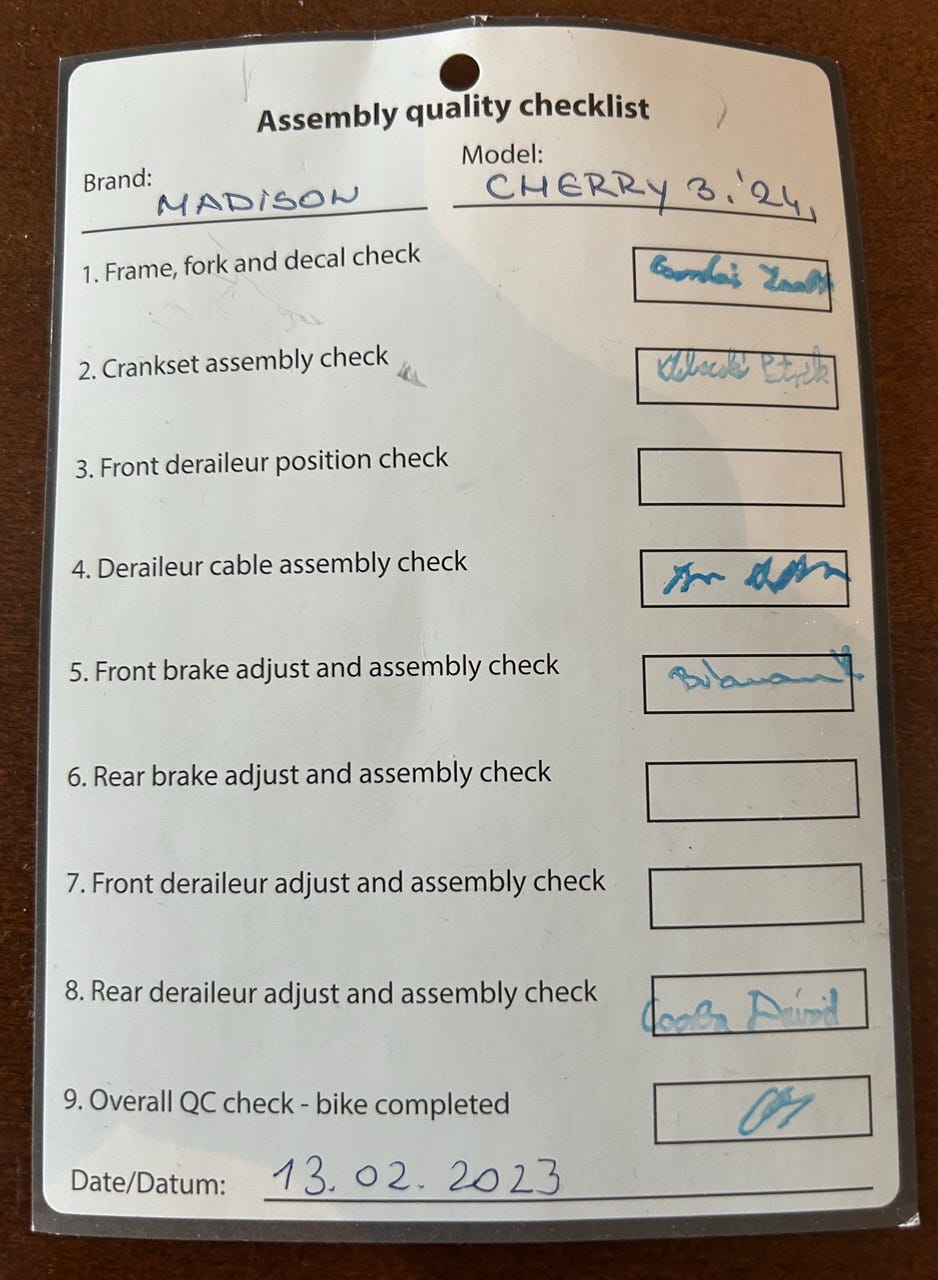 Assembly quality checklist
Brand: MADISON Model: CHERRY 3.'24,
1. Frame, fork and decal check
2. Crankset assembly check
3. Front deraileur position check
4. Deraileur cable assembly check
5. Front brake adjust and assembly check
6. Rear brake adjust and assembly check
7. Front deraileur adjust and assembly check
8. Rear deraileur adjust and assembly check Dávid
9. Overall QC check - bike completed
Date/Datum: 13.02.2023